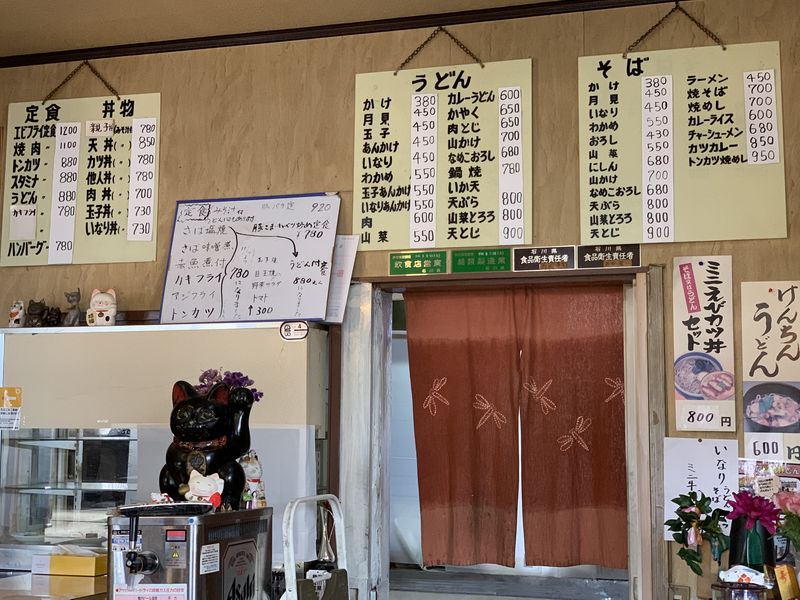 定食 丼物
エビフライ定食 1200
焼肉 〃 1100
トンカツ 〃 880
スタミナ 〃 880
うどん 〃 880
780
ハンバーグ〃 780
親子丼 780
天丼 850
カツ丼 780
他人丼 780
肉丼 700
玉子丼 730
いなり丼 730
うどん
かけ 380
月見 450
玉子 450
あんかけ 450
いなり 450
わかめ 450
玉子あんかけ 550
いなりあんかけ 550
肉 600
山菜 550
カレーうどん 600
かやく 650
肉とじ 650
山かけ 700
なめこおろし 680
鍋焼 780
いか天
天とじ
山菜とろろ 800
天ぷら 800
そば
かけ 380
月見 450
いなり 450
わかめ 550
おろし 430
山菜 550
にしん 680
山かけ 700
なめこおろし 680
天ぷら 800
山菜とろろ 800
天とじ 900
ラーメン 450
焼そば 700
焼めし 700
カレーライス 600
チャーシューメン 680
カツカレー 850
トンカツ焼めし 950
定食
920
さば塩焼
¥780
さば味噌煮
赤魚煮付
カキフライ 780
アジフライ
トンカツ
うどん付
880
目玉焼
野菜サラダ
トマト
↑300
飲食店営業
石川県
食品衛生責任者
石川県
食品衛生責任者
ミニえびカツ丼
セット
800円
けんちん
うどん
600円
いなり
うどん
そば
ミニ牛
Asahi